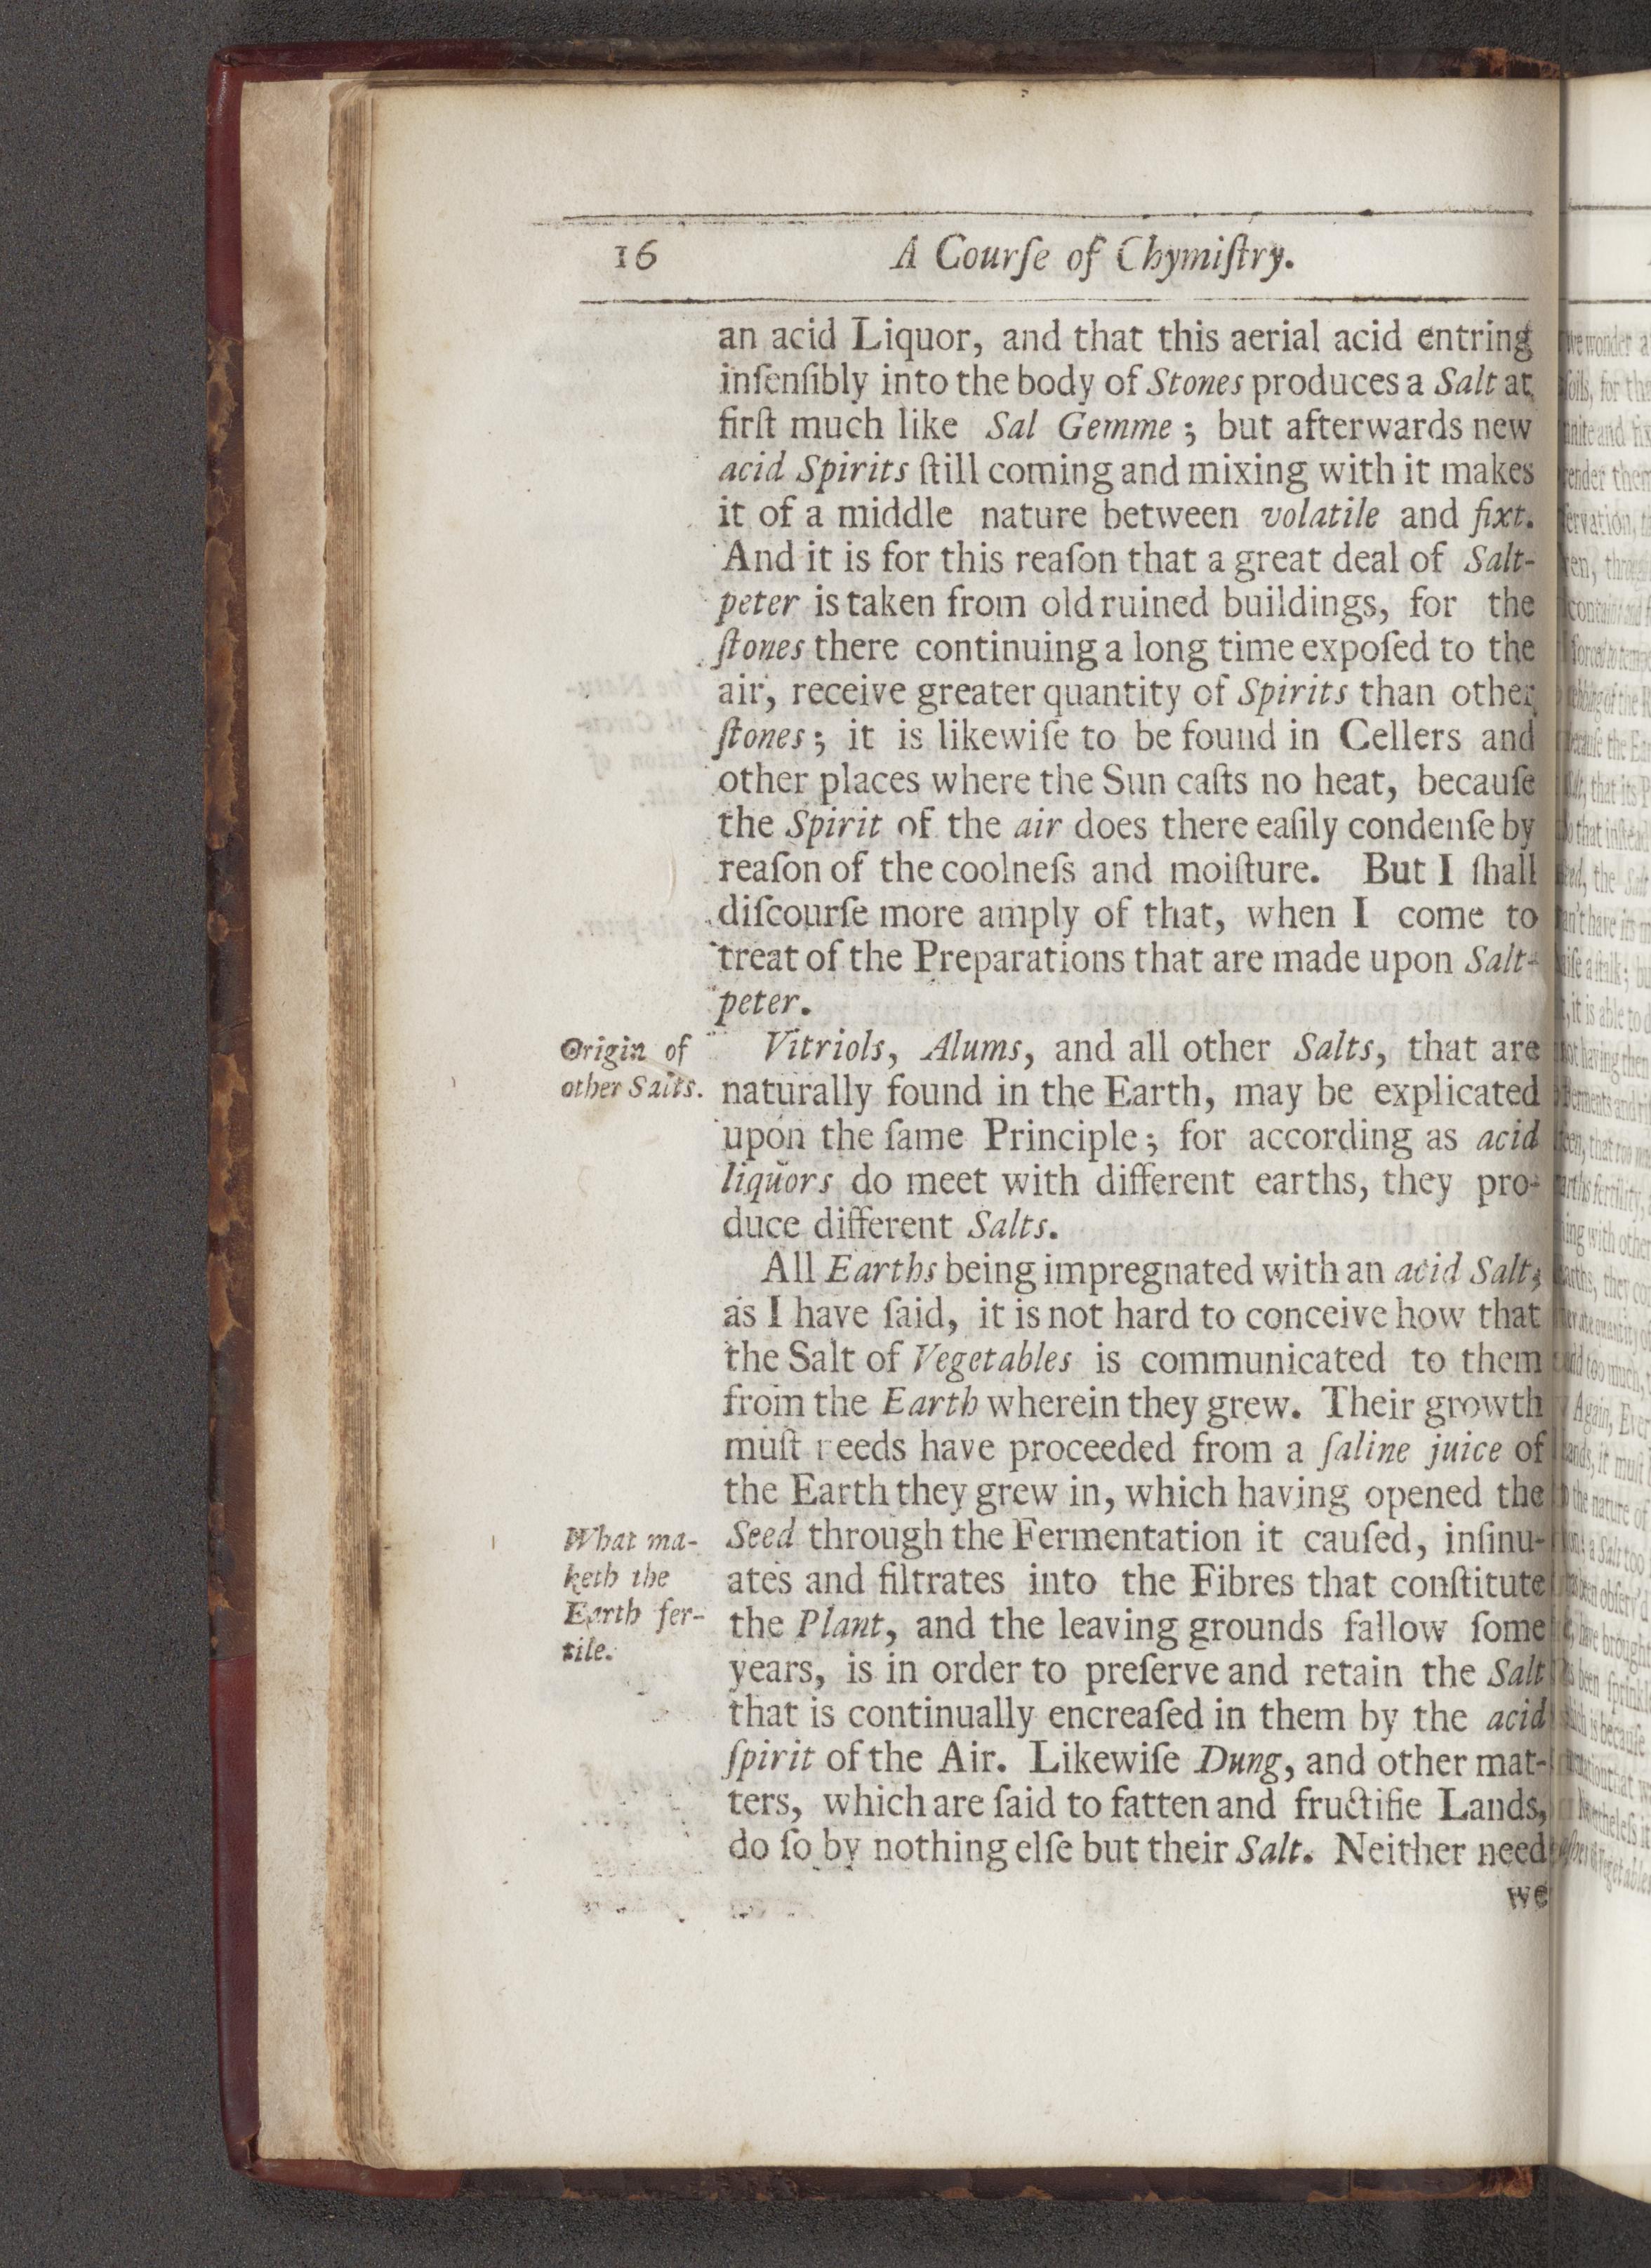 16 A Courſe of Chymiſtry.
an acid Liquor, and that this aerial acid entring
inſenſibly into the body of Stones produces a Salt at
firſt much like Sal Gemme ; but afterwards new
acid Spirits ſtill coming and mixing with it makes
it of a middle nature between volatile and fixt.
And it is for this reaſon that a great deal of Salt-
peter is taken from old ruined buildings, for the
ſtones there continuing a long time expoſed to the
air, receive greater quantity of Spirits than other
ſtones ; it is likewiſe to be found in Cellers and
other places where the Sun caſts no heat, becauſe
the Spirit of the air does there eaſily condenſe by
reaſon of the coolneſs and moiſture. But I ſhall
diſcourſe more amply of that, when I come to
treat of the Preparations that are made upon Salt-
peter.
Origin of
other Salts.
Vitriols, Alums, and all other Salts, that are
naturally found in the Earth, may be explicated
upon the ſame Principle ; for according as acid
liquors do meet with different earths, they pro-
duce different Salts.
All Earths being impregnated with an acid Salt,
as I have ſaid, it is not hard to conceive how that
the Salt of Vegetables is communicated to them
from the Earth wherein they grew. Their growth
muſt needs have proceeded from a ſaline juice of
the Earth they grew in, which having opened the
What ma-
keth the
Earth fer-
tile.
Seed through the Fermentation it cauſed, inſinu-
ates and filtrates into the Fibres that conſtitute
the Plant, and the leaving grounds fallow ſome
years, is in order to preſerve and retain the Salt
that is continually encreaſed in them by the acid
ſpirit of the Air. Likewiſe Dung, and other mat-
ters, which are ſaid to fatten and fructifie Lands,
do ſo by nothing elſe but their Salt. Neither need
we